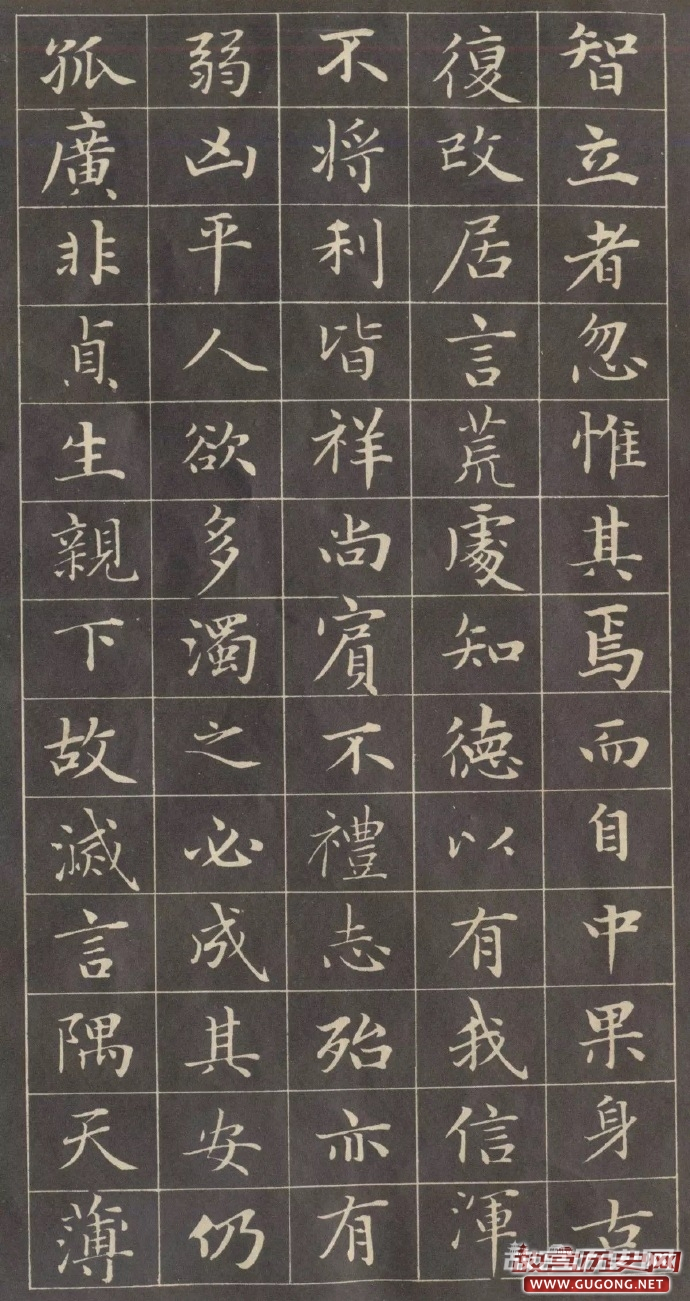 智立者忽惟其焉而自中果身古
復改居言荒處知德以有我信渾
不将利皆祥尚賓不禮志殆亦有
弱凶平人欲多濁之必成其安仍
孤廣非貞生親下故滅言隅天薄
故宫历史网
www.GUGONG.NET